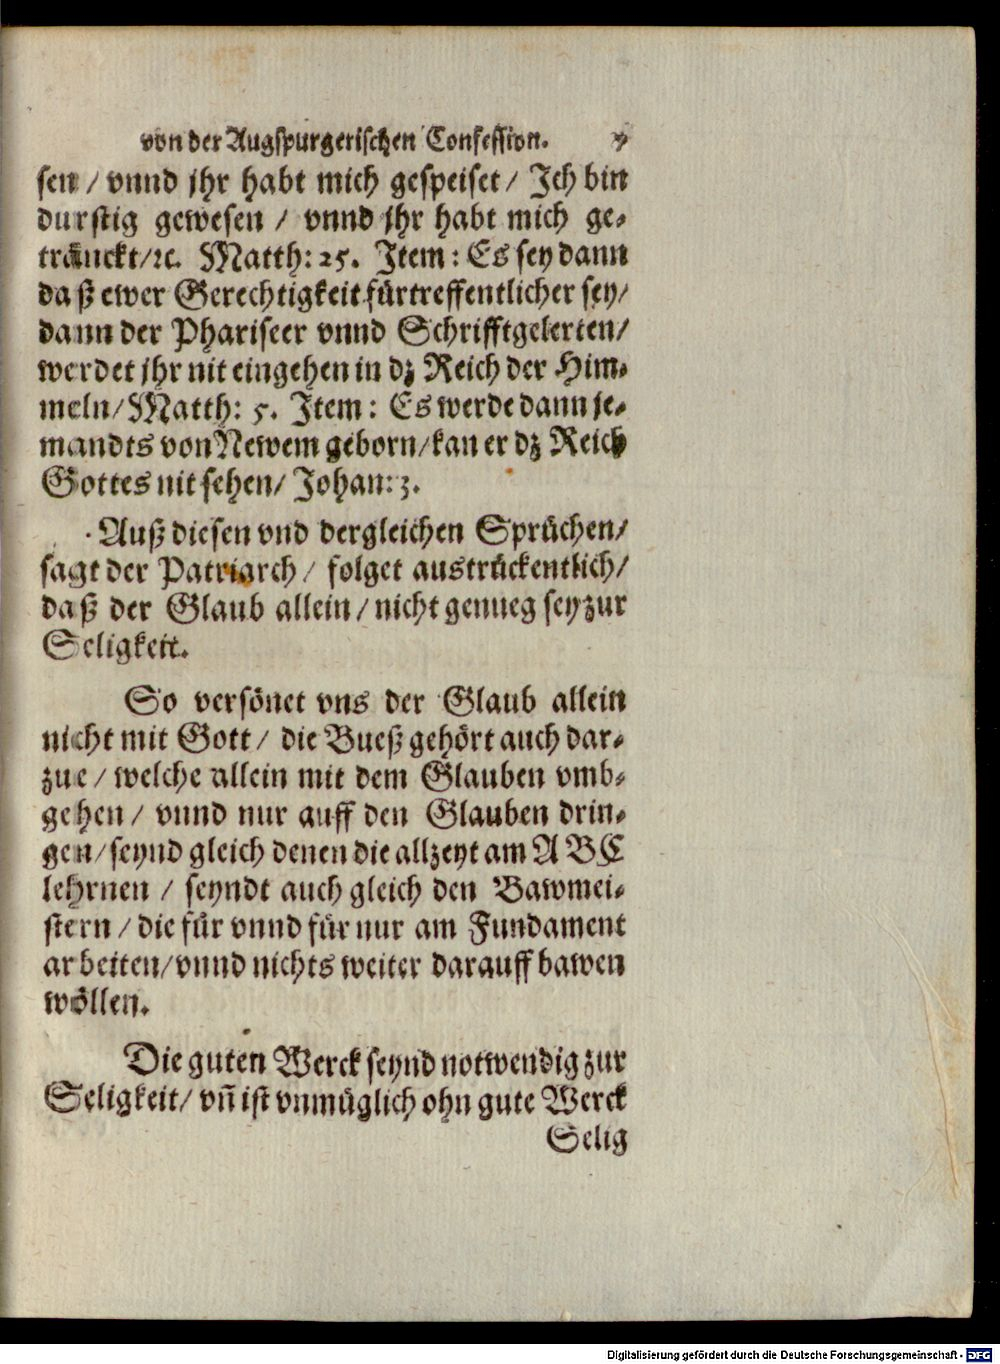 von der Augspurgerischen Confession.
sen / vnnd jhr habt mich gespeiset / Ich bin
durstig gewesen / vnnd jhr habt mich ge-
tränckt/ꝛc. Matth: 25. Item: Es sey dann
daß ewer Gerechtigkeit fürtreffentlicher sey/
dann der Phariseer vnnd Schrifftgelerten/
werdet jhr nit eingehen in dz Reich der Him-
meln/Matth: 5. Item: Es werde dann je-
mandts von Newem geborn/kan er dz Reich
Gottes nit sehen/ Johan: 3.
Auß diesen vnd dergleichen Sprüchen/
sagt der Patriarch / folget austrückentlich/
daß der Glaub allein / nicht genueg sey zur
Seligkeit.
So versönet vns der Glaub allein
nicht mit Gott/ die Bueß gehört auch dar-
zue / welche allein mit dem Glauben vmb-
gehen / vnnd nur auff den Glauben drin-
gen/seynd gleich denen die allzeyt am ABC
lehrnen / seyndt auch gleich den Bawmei-
stern / die für vnnd für nur am Fundament
arbeiten/vnnd nichts weiter darauff bawen
wöllen.
Die guten Werck seynd notwendig zur
Seligkeit/ vñ ist vnmüglich ohn gute Werck
Selig
Digitalisierung gefördert durch die Deutsche Forschungsgemeinschaft - DFG